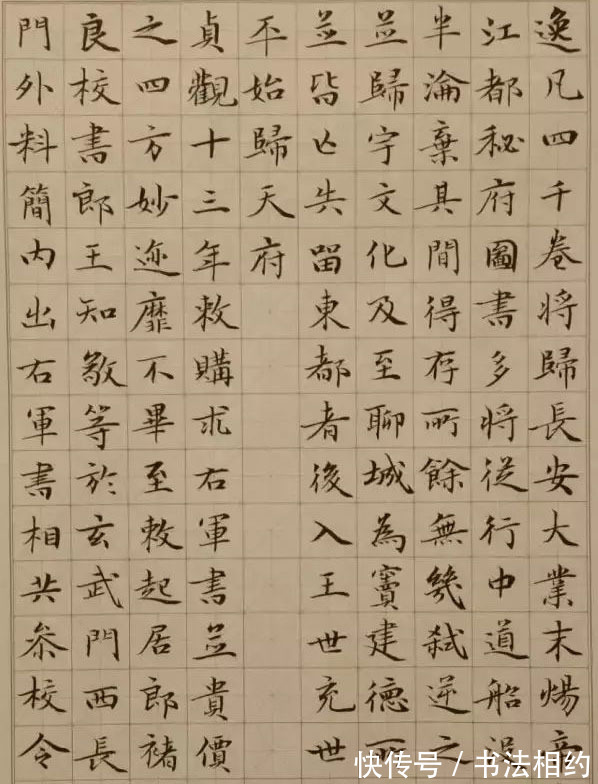 逸凡四千卷将歸長安大業末煬帝
江都秘府圖書多将從行中道船
半淪棄其間得存所餘無幾弑逆之
並歸宇文化及至聊城為竇建德所
並皆亡失留東都者後入王世充世
平始歸天府
貞觀十三年敕購求右軍書並貴價
之四方妙迹靡不畢至敕起居郎褚
良校書郎王知敬等於玄武門西長
門外料簡内出右軍書相共参校令
快传号 / 书法相约